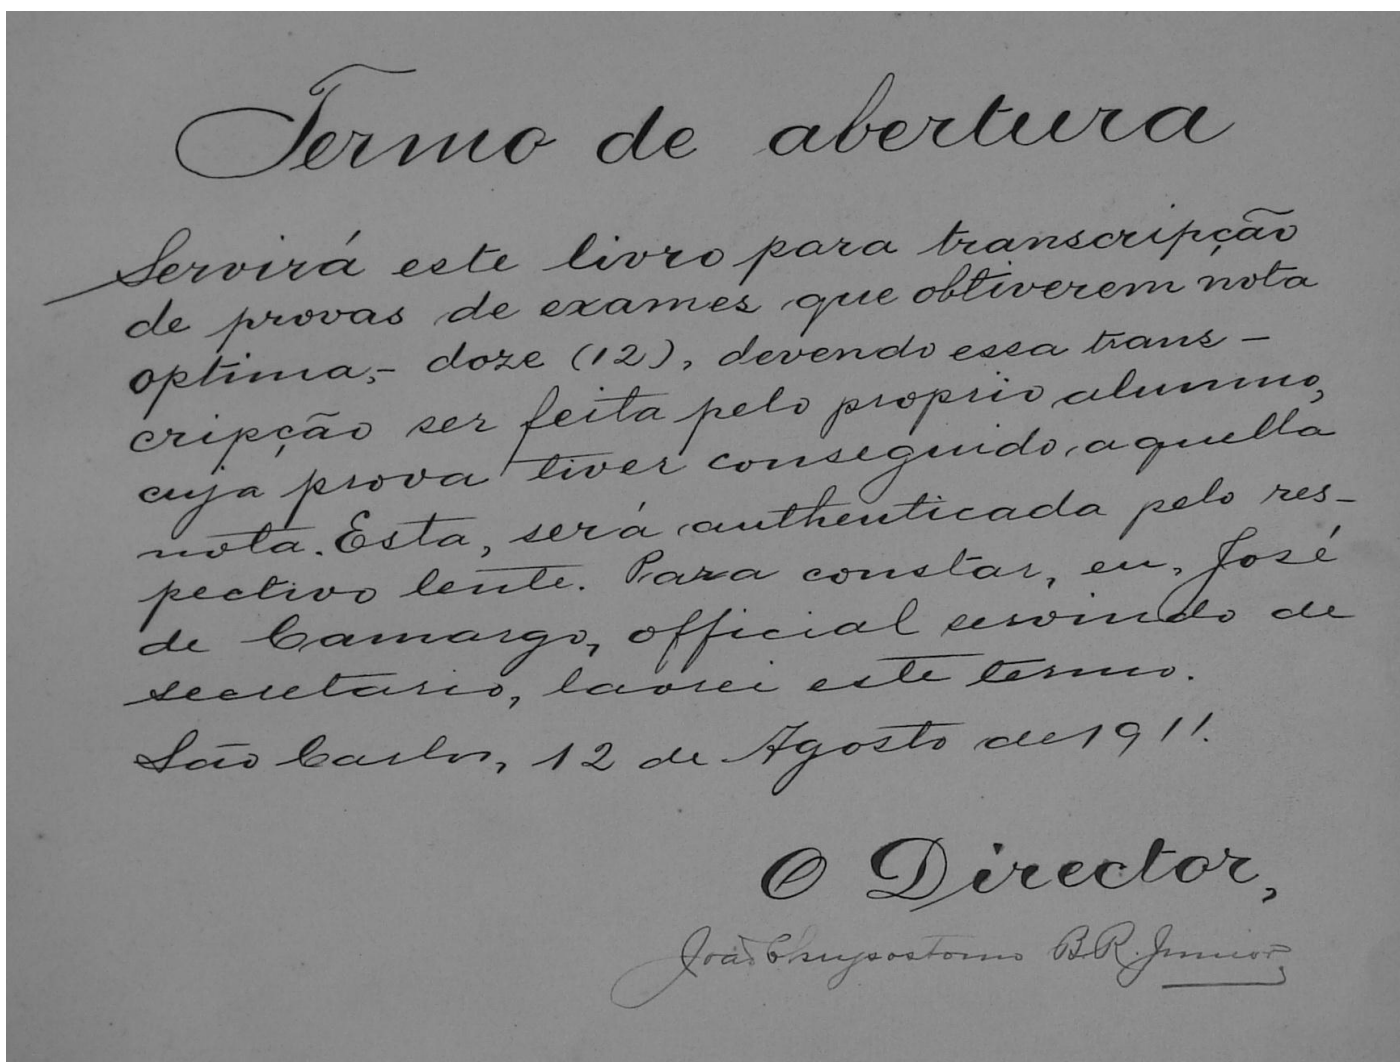 Termo de abertura
Servirá este livro para transcripção
de provas de exames que obtiverem nota
optima,- doze (12), devendo essa trans-
cripção ser feita pelo proprio alumno,
cuja prova tiver conseguido aquella
nota. Esta, será authenticada pelo res-
pectivo lente. Para constar, eu, José
de Camargo, official servindo de
secretario, lavrei este termo.
São Carlos, 12 de Agosto de 1911.
O Director,
João Chrysostomo B R. Junior